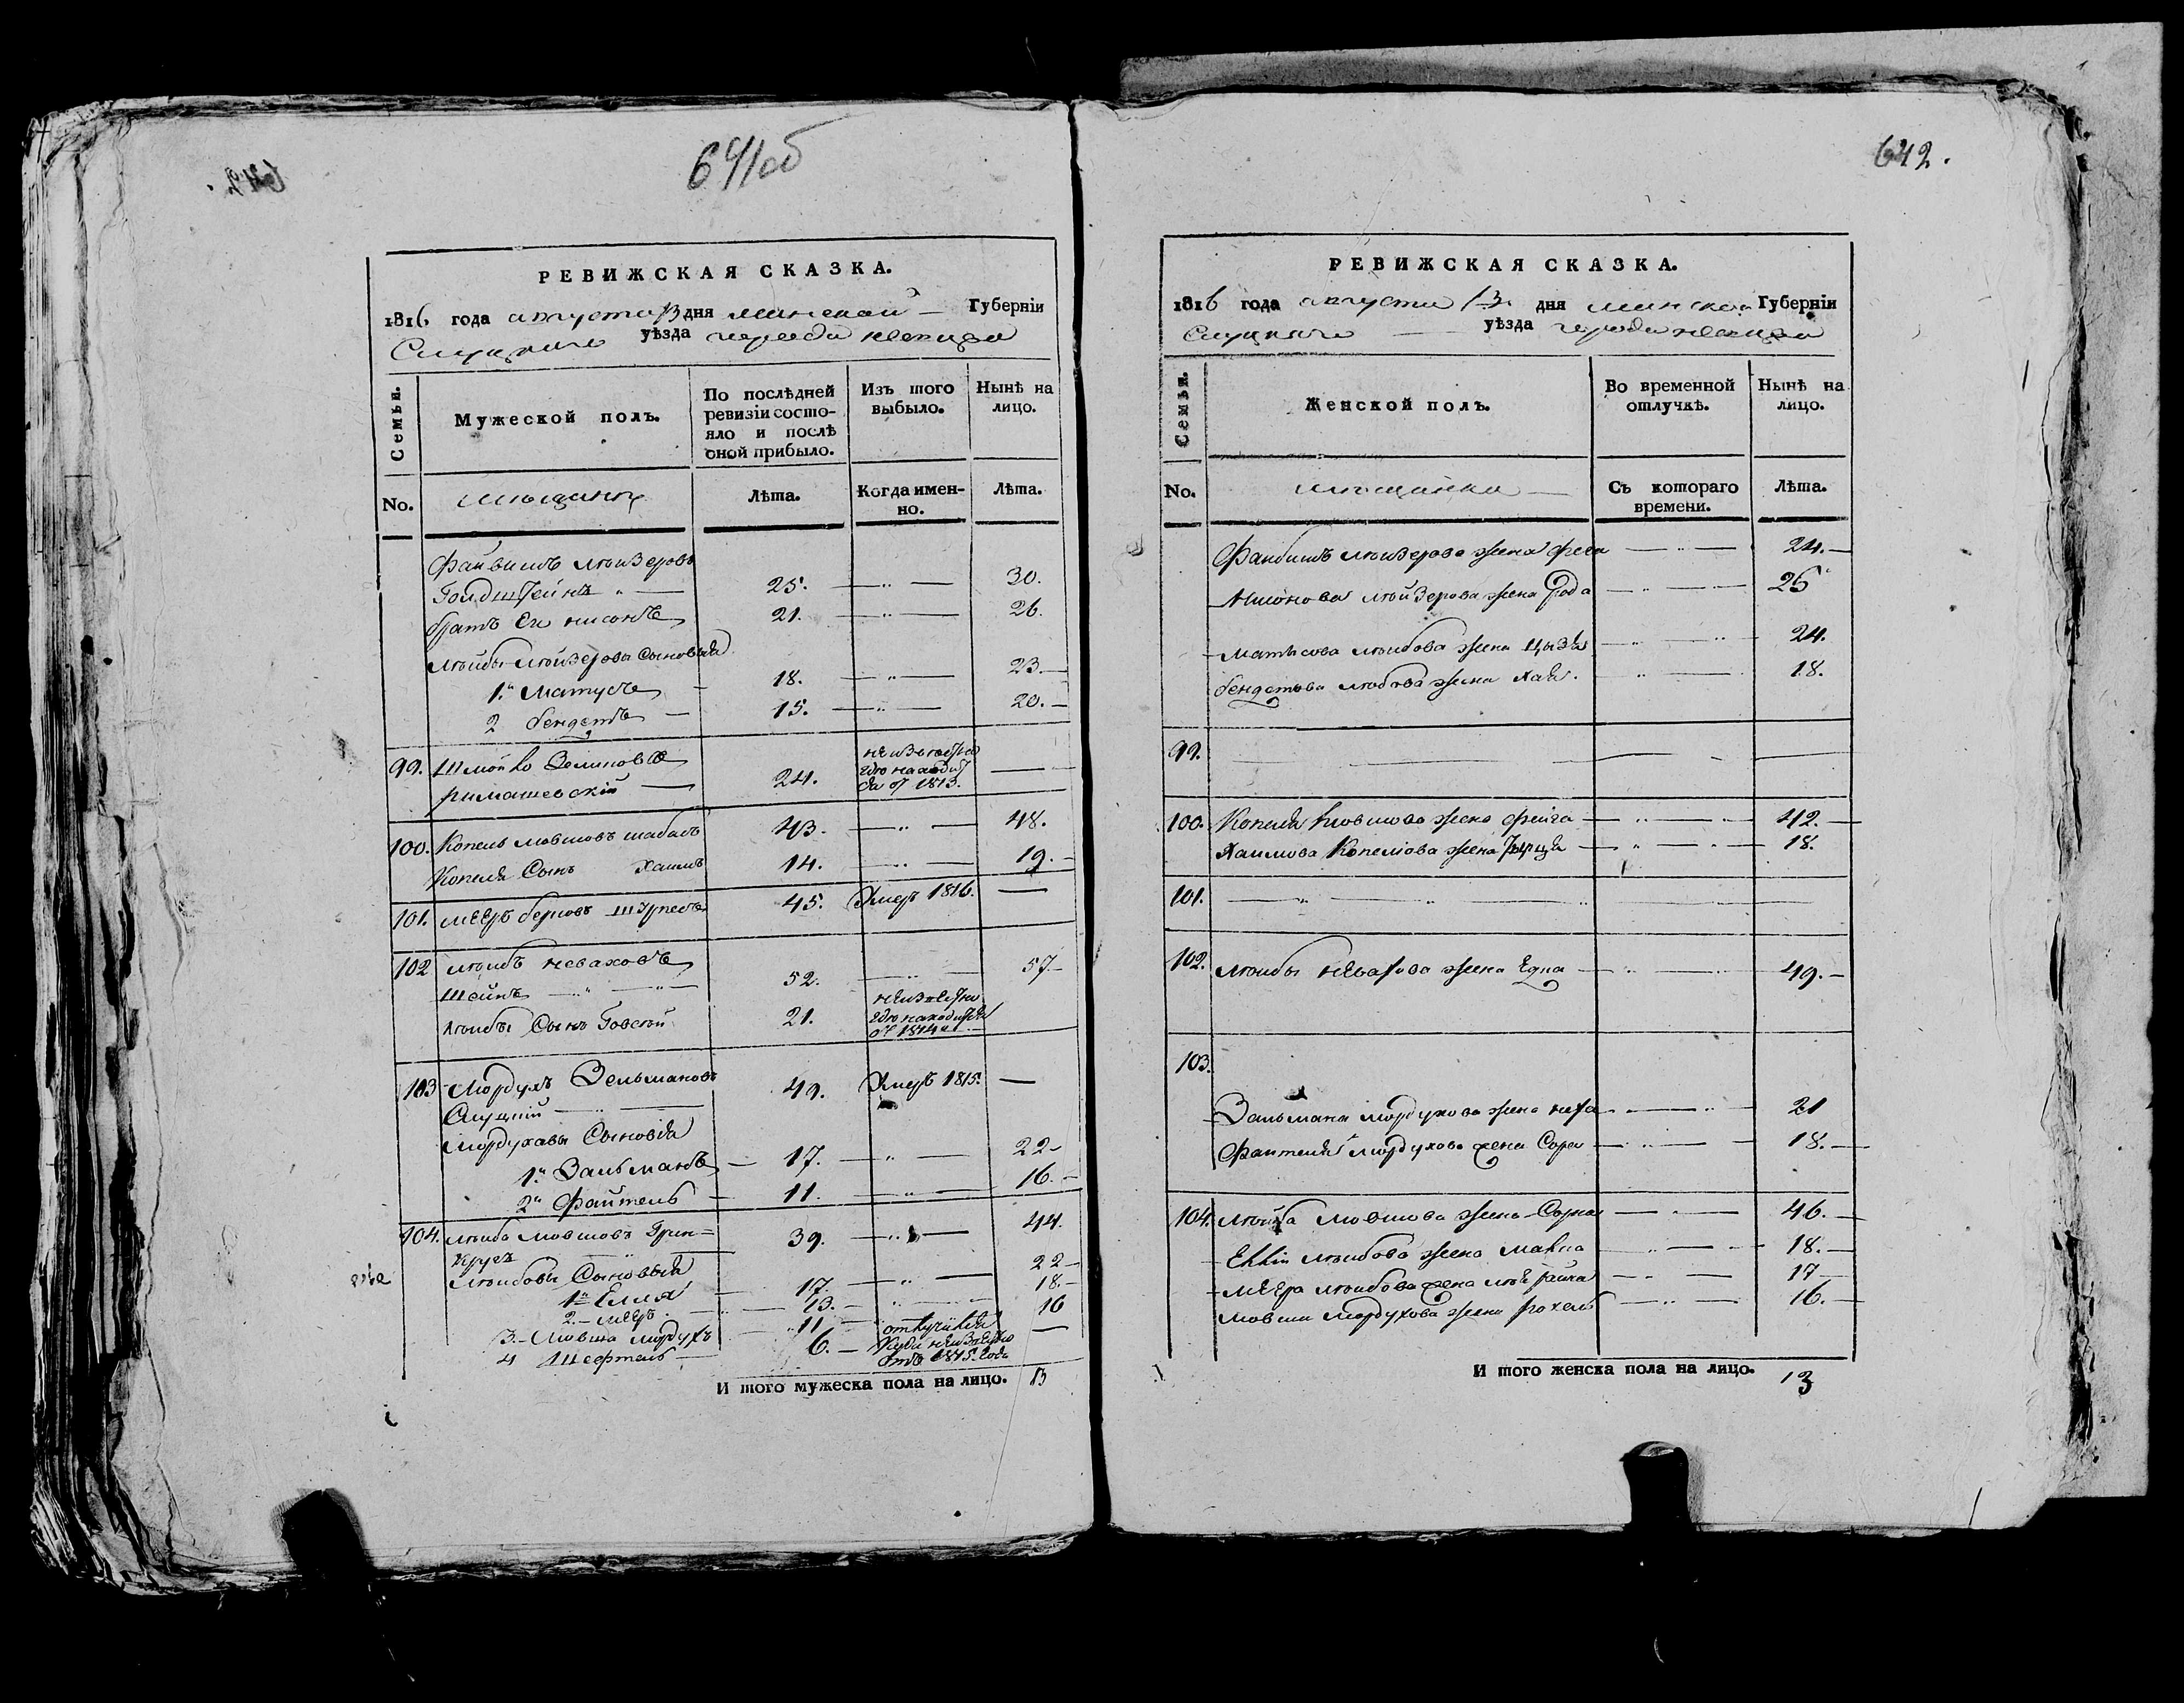 641об
РЕВИЖСКАЯ СКАЗКА.
1816 года августа 13 дня Минской Губерніи
Слуцкаго уѣзда города Несвижа
Семьи.
Мужеской полъ.
По послѣдней ревизіи состояло и послѣ оной прибыло.
Изъ того выбыло.
Нынѣ на лицо.
No.
мѣщанъ
Лѣта.
Когда именно.
Лѣта.
Файвишъ Лейзеровъ
Голдштейнъ 25. 30.
братъ Ею Нисонъ 21. 26.
Лейбы Лейзерова Сыновья
1. Матусъ 18. 23.
2 Бендетъ 15. 20.
99. Шмойло Зелиновъ
Римашевскій 24. неизвестно где находится от 1813.
100. Копель Мовшовъ Шабасъ 43. 48.
Копеля Сынъ Хаимъ 14. 19.
101. Мееръ Берковъ 45. Умеръ 1816.
102 Лейбъ Неваховъ
Шейнъ 52. 57.
Лейбы Сынъ 21. неизвестно где находится от 1814
103 Мордухъ Зельмановъ 49. Умеръ 1815.
Слуцкій
Мордухавы Сыновья
1. Зальманъ 17. 22
2. Файтель 11. 16.
104. Лейба Мовшовъ Грин=
кругъ 39. 44.
Лейбовы Сыновья
1. Еля 17. 22
2. Мееръ 13. 18.
3. Мовша Мордухъ 11 16
4 Шефтель 6. отлучился Куды неизвестно отъ 1815. Года
И того мужеска пола на лицо. 13
642.
РЕВИЖСКАЯ СКАЗКА.
1816 года августа 13. дня Минской Губерніи
Слуцкаго уѣзда города Несвижа
Семьи.
Женской полъ.
Во временной отлучкѣ.
Нынѣ на лицо.
No.
мѣщанка
Съ котораго времени.
Лѣта.
Файбишъ Лейзерова жена 24.
Нисонова Лейзерова жена Рода 25
Матысова Лейбова жена 24.
Бендетова Лейбова жена Хая. 18.
99.
100. Копеля Мовшова жена Фейга 42.
Хаимова Копелiова жена 18.
101.
102. Лейбы Невахова жена Една 49.
103.
Зальмана Мордухова жена Неха 21
Файтеля Мордухова жена Сора 18.
104. Лейба Мовшова жена Сорка 46.
Елли Лейбова жена Малка 18.
Меера Лейбова жена 17
Мовши Мордухова жена Рохель 16.
И того женска пола на лицо. 13